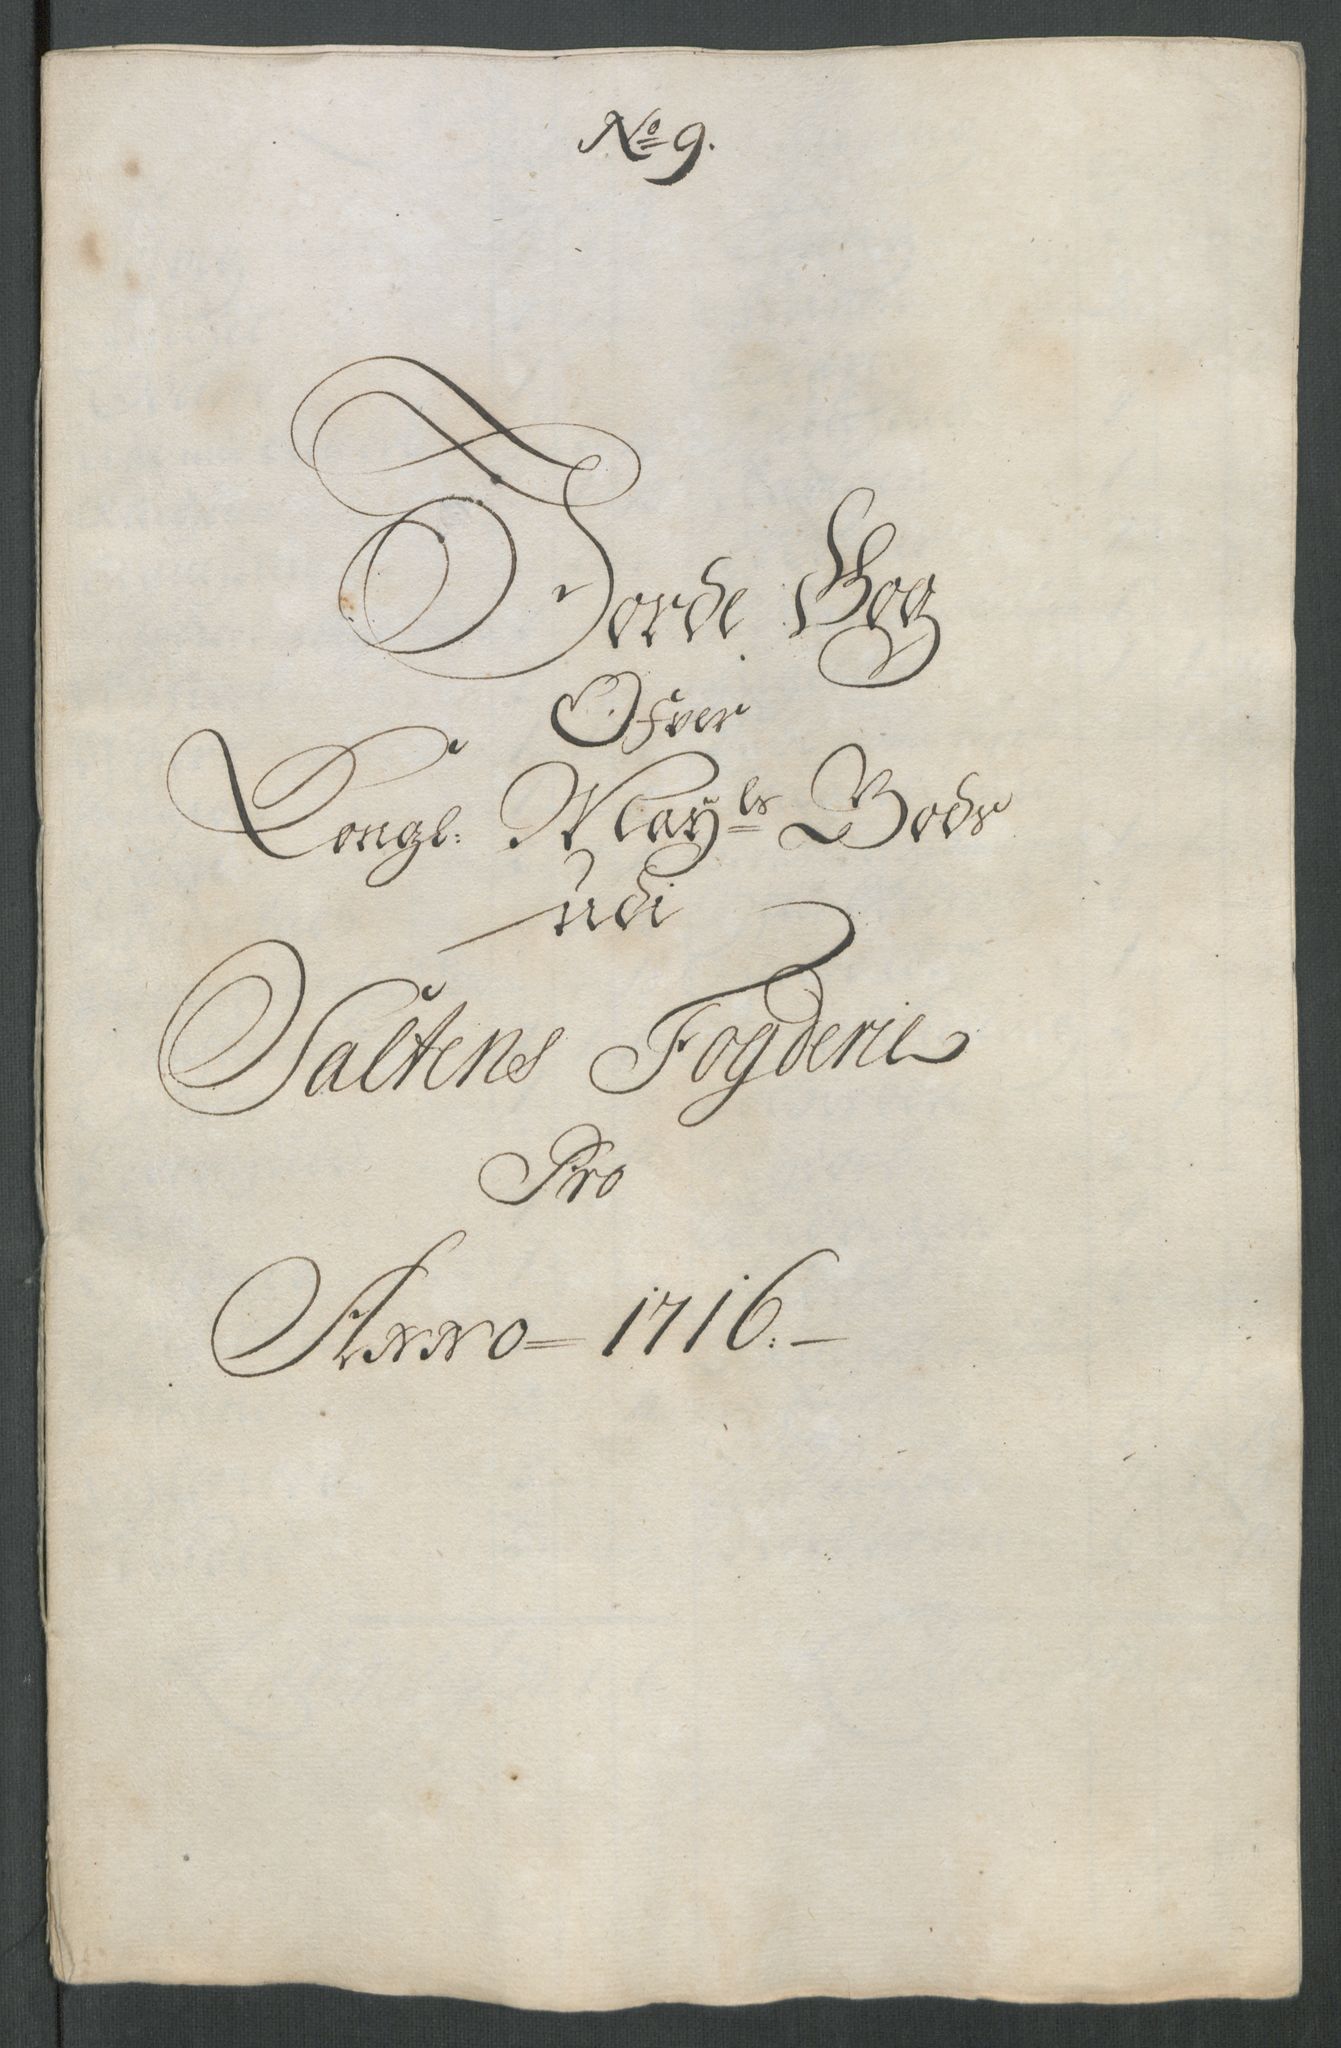 No 9.
Jorde Bog
Ofver
Kongl: Mayts Gods
udi
Saltens Fogderie
Pro
Anno = 1716. —